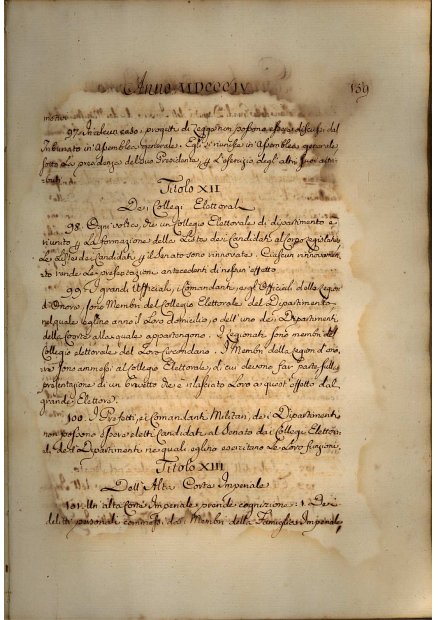 Anno MDCCCIV 139
motivi.
97. In alcun caso, progetti di Legge non possono essere discussi dal
Tribunato in Assemblea generale. Egli si riunisce in Assemblea generale
sotto la presidenza del suo Presidente, per l'esercizio degl'altri suoi attri-
buti.
Titolo XII
Dei Collegi Elettorali
98. Ogni volta, che un Collegio Elettorale di dipartimento è
riunito per la formazione della Lista dei Candidati al Corpo Legislativo
Le Liste dei Candidati per il Senato sono rinnovate. Ciascun rinnovamen-
to rende Le presentazioni antecedenti di nessun effetto.
99. I grandi Uffiziali, i Comandanti, e gl'Offiziali della Legion
d'Onore, sono Membri del Collegio Elettorale del Dipartimento
nel quale eglino anno il Loro domicilio, o dell'uno dei Dipartimenti
della Coorte alla quale appartengono. I Legionari sono membri del
Collegio elettorale del Loro Circondario. I Membri della Legion d'ono-
re sono ammessi al Collegio Elettorale, di cui devono far parte, sulla
presentazione di un brevetto che è rilasciato Loro a quest'effetto dal
grande Elettore.
100. I Prefetti, e i Comandanti Militari, dei Dipartimenti
non possono essere eletti Candidati al Senato dai Collegi Elettora-
li dei Dipartimenti ne quali eglino esercitano Le Loro funzioni.
Titolo XIII
Dell'Alta Corte Imperiale
101. Un'alta Corte Imperiale prende cognizione: 1. Dei
delitti personali commessi dai Membri della Famiglia Imperiale,